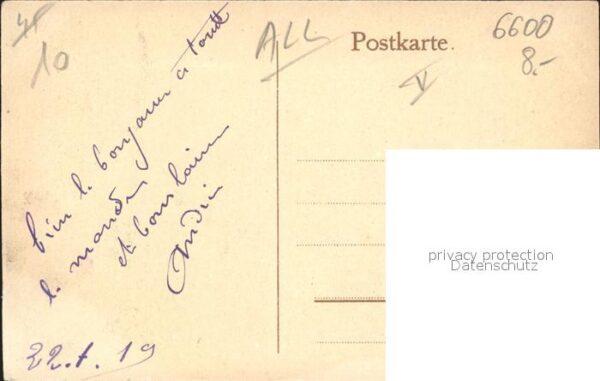 10
ALL
Postkarte.
6600
8.-
V
bien le bonjour a toutt
le monde
et bons
22.1.19
privacy protection
Datenschutz